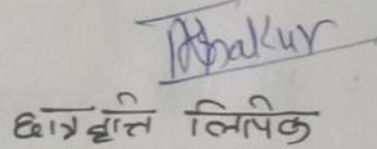 Thakur
छात्रवृत्ति लिपिक